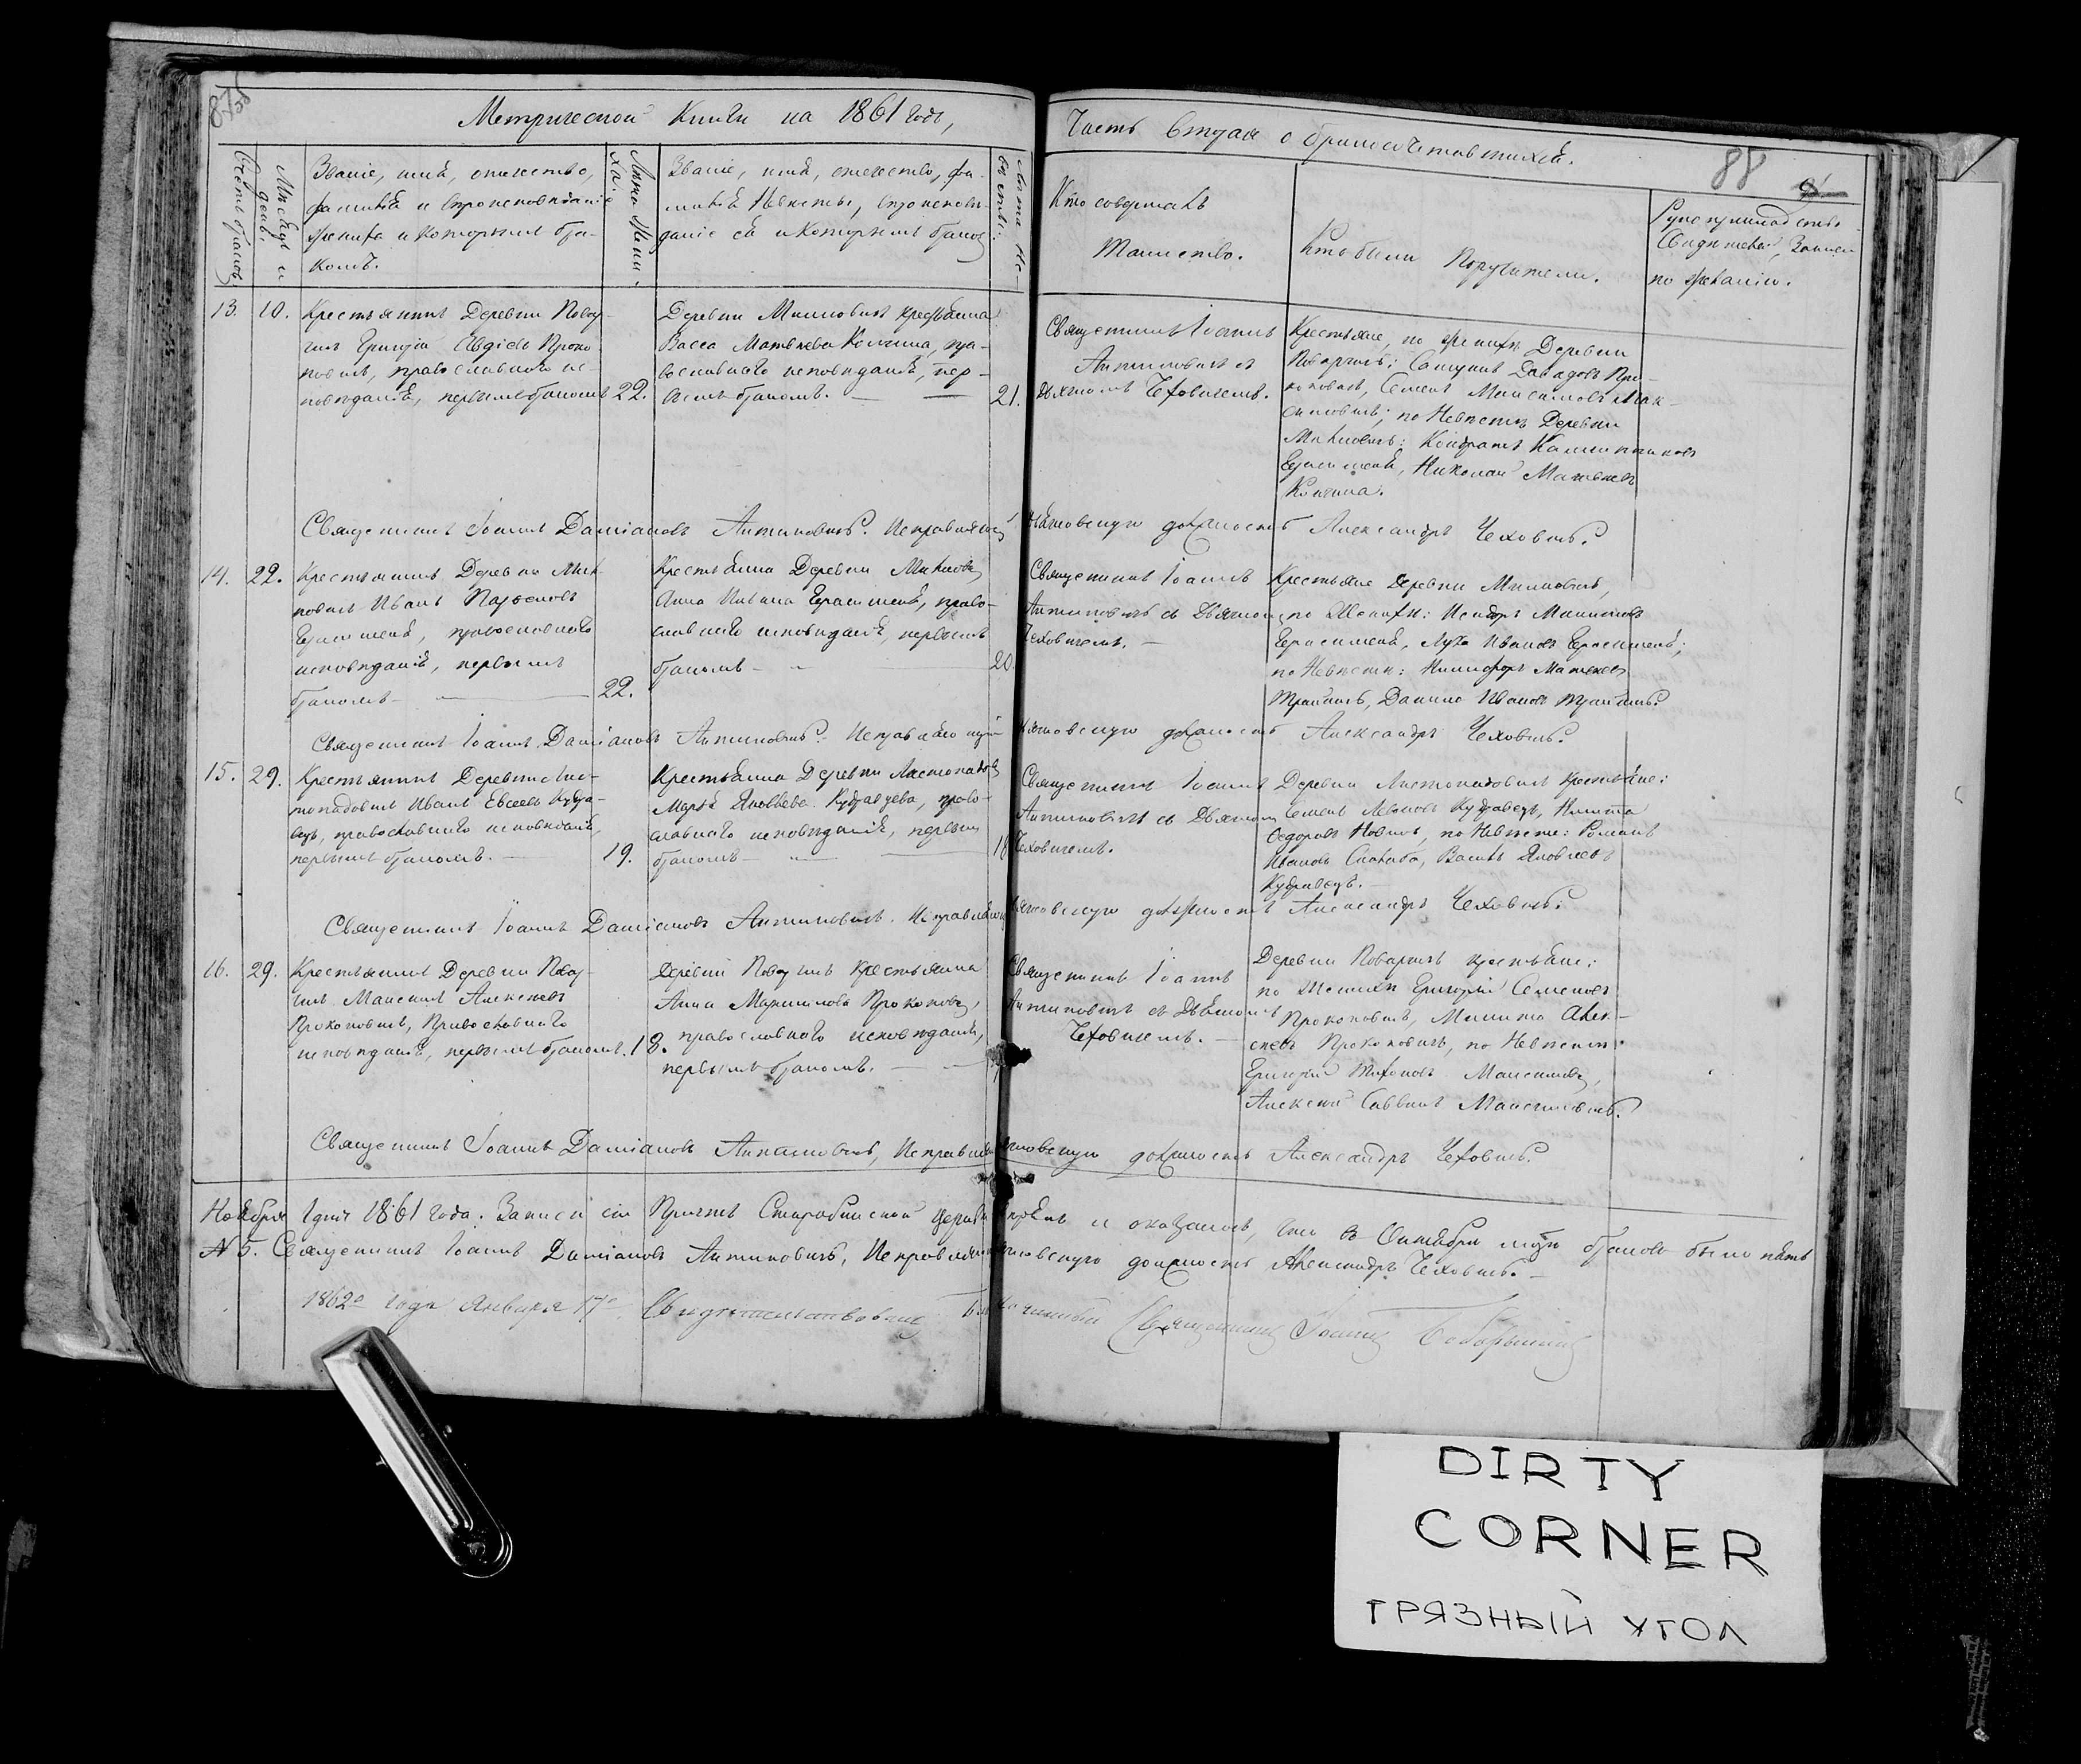 Метрической Книги на 1861 годъ,
Часть Вторая о бракосочетавшихся.
88
Счетъ браковъ
Мѣсяцъ и день.
Званіе, имя, отчество,
фамилія и вѣроисповѣданіе
жениха и которымъ бра-
комъ.
Лѣта жени-
ха.
Званіе, имя, отчество, фа-
милія невѣсты, вѣроисповѣ-
даніе ея и которымъ бракомъ
Лѣта не-
вѣсты.
Кто совершалъ
Таинство.
Кто были Поручители.
Рукоприкладство
Свидѣтелей Записи
по желанію.
13. 10. Крестьянинъ Деревни Повар-
чичъ Григорій Авдіевъ Проко-
повичъ, православнаго ис-
повѣданія, первымъ бракомъ 22.
Деревни Милковичъ крестьянка
Васса Матвѣева, пра-
вославнаго исповѣданія, пер-
вымъ бракомъ. 21.
Священникъ Іоаннъ
Антиповичъ съ
дьячкомъ Чеховичемъ.
Крестьяне, по женихѣ Деревни
Поварчичъ: Давидовъ Про-
коповичъ, Семенъ Максимовъ Мак-
симовичъ; по Невѣстѣ Деревни
Милковичъ: Кондратъ
Герасименя, Николай Матвѣевъ
Священникъ Іоаннъ Даміановъ Антиповичъ. Исправляющій дьячковскую должность Александръ Чеховичъ.
14. 22. Крестьянинъ Деревни Мил-
ковичъ Иванъ Парѳеновъ
Герасименя, православнаго
исповѣданія, первымъ
бракомъ 22.
Крестьянка Деревни Милковичъ
Анна Ивана Герасименя, право-
славнаго исповѣданія, первымъ
бракомъ 20.
Священникъ Іоаннъ
Антиповичъ съ Дьячкомъ
Чеховичемъ.
Крестьяне Деревни Милковичъ,
по Женихѣ:
Герасименя, Лука Ивановъ Герасименя;
по Невѣстѣ: Никифоръ Матвѣевъ
Данило Ивановъ
Священникъ Іоаннъ Даміановъ Антиповичъ. Исправляющій дьячковскую должность Александръ Чеховичъ.
15. 29. Крестьянинъ Деревни Лис-
топадовичъ Иванъ Евсеевъ Кудра-
вецъ, православнаго исповѣданія,
первымъ бракомъ. 19.
Крестьянка Деревни Листопадовичъ
Марья Яковлева Кудравцева, право-
славнаго исповѣданія, первымъ
бракомъ 18.
Священникъ Іоаннъ
Антиповичъ съ Дьячкомъ
Чеховичемъ.
Деревни Листопадовичъ крестьяне:
Семенъ Кудравецъ, Никита
Ѳедоровъ по Невѣстѣ: Романъ
Ивановъ Василь Яковлевъ
Кудравецъ.
Священникъ Іоаннъ Даміановъ Антиповичъ. Исправляющій дьячковскую должность Александръ Чеховичъ.
16. 29. Крестьянинъ Деревни Повар-
чичъ Максимъ Алексѣевъ
Прокоповичъ, Православнаго
исповѣданія, первымъ бракомъ. 18.
Деревни Поварчичъ Крестьянка
Анна Прокоповичъ,
православнаго исповѣданія,
первымъ бракомъ.
Священникъ Іоаннъ
Антиповичъ съ Дьячкомъ
Чеховичемъ.
Деревни Поварчичъ крестьяне:
по Женихѣ Григорій Семеновъ
Прокоповичъ, Никита Алек-
сѣевъ Прокоповичъ, по Невѣстѣ:
Григорій Тихоновъ Максимовичъ,
Алексѣй Саввичъ Максимовичъ.
Священникъ Іоаннъ Даміановъ Антиповичъ, Исправляющій дьячковскую должность Александръ Чеховичъ.
Ноября 1 дня 1861 года. Записи сіи Причтъ Старобинской церкви повѣрялъ и оказалось, что въ Октябрѣ мцѣ браковъ было пять
№ 5. Священникъ Іоаннъ Даміановъ Антиповичъ, Исправляющій дьячковскую должность Александръ Чеховичъ.
1862го года Января 17го Свидѣтельствовалъ Благочинный Священникъ Іоаннъ
DIRTY
CORNER
ГРЯЗНЫЙ УГОЛ